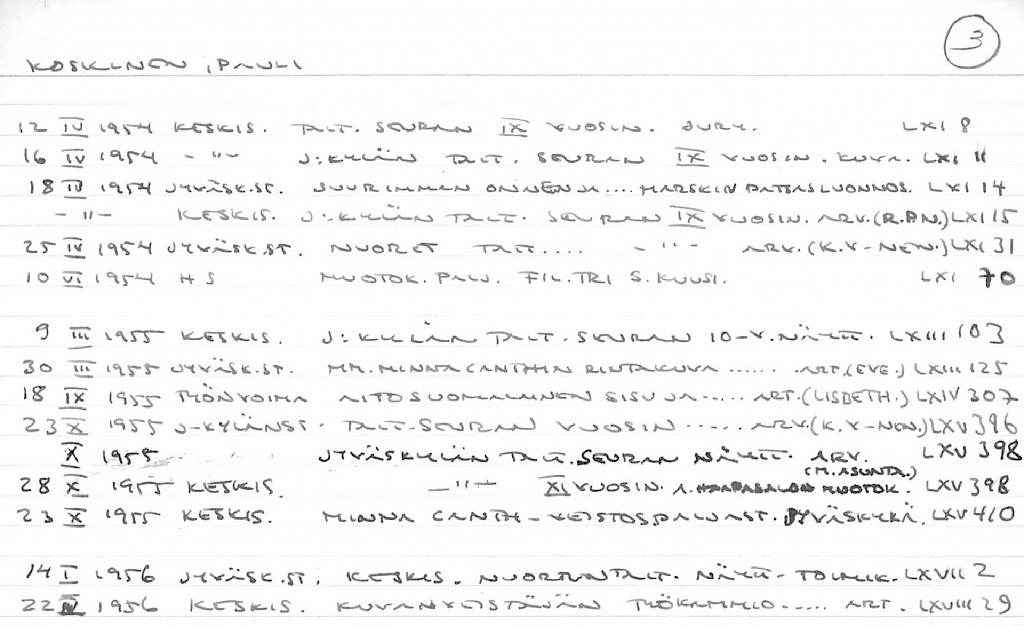 3
KOSKINEN, PAULI
12 IV 1954 KESKIS. TAIT. SEURAN IX VUOSIN. JURY. LXI 8
16 IV 1954 - " - J:KYLÄN TAIT. SEURAN IX VUOSIN. KUVA. LXI 11
18 IV 1954 JYVÄSK.ST. SUURIMMAN ONNENI JA.... MARSKIN PATSASLUONNOS. LXI 14
- " - KESKIS. J:KYLÄN TAIT. SEURAN IX VUOSIN. ARV. (R.PN.) LXI 15
25 IV 1954 JYVÄSK.ST. NUORET TAIT.... - " - ARV. (K.V-NEN.) LXI 31
10 VI 1954 H S MUOTOK. PALJ. FIL. TRI S. KUUSI. LXI 70
9 III 1955 KESKIS. J:KYLÄN TAIT. SEURAN 10-V. NÄYTT. LXIII 103
30 III 1955 JYVÄSK.ST. MM. MINNA CANTHIN RINTAKUVA ...... ART. (EVE.) LXIII 125
18 IX 1955 TYÖNVOIMA AITOSUOMALAINEN SISU JA ..... ART. (LISBETH.) LXIV 307
23 X 1955 J-KYLÄNST. TAIT-SEURAN VUOSIN ..... ARV. (K.V-NEN.) LXV 396
X 1955 JYVÄSKYLÄN TAIT. SEURAN NÄYTT. ARV. LXV 398
28 X 1955 KESKIS. - " - XI VUOSIN. A. HAAPASALON MUOTOK. (M. ASUNTA.) LXV 398
23 X 1955 KESKIS. MINNA CANTH-VEISTOSPALJAST. JYVÄSKYLÄ. LXV 410
14 I 1956 JYVÄSK.ST, KESKIS. NUORTENTAIT. NÄYTT-TOIMIK. LXVII 2
22 IV 1956 KESKIS. KUVANVEISTÄJÄN TYÖKAMMIO ..... ART. LXVIII 29